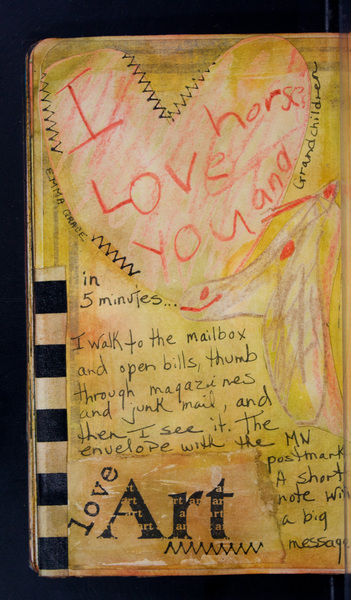 I
horse
LOVE
and
Grandchildren
YOU
EMMA GRACE
in
5 minutes...
I walk to the mailbox
and open bills, thumb
through magazines
and junk mail, and
then I see it. The
envelope with the MN
postmark
A short
note with
a big
message
love
Art
art art art
art art